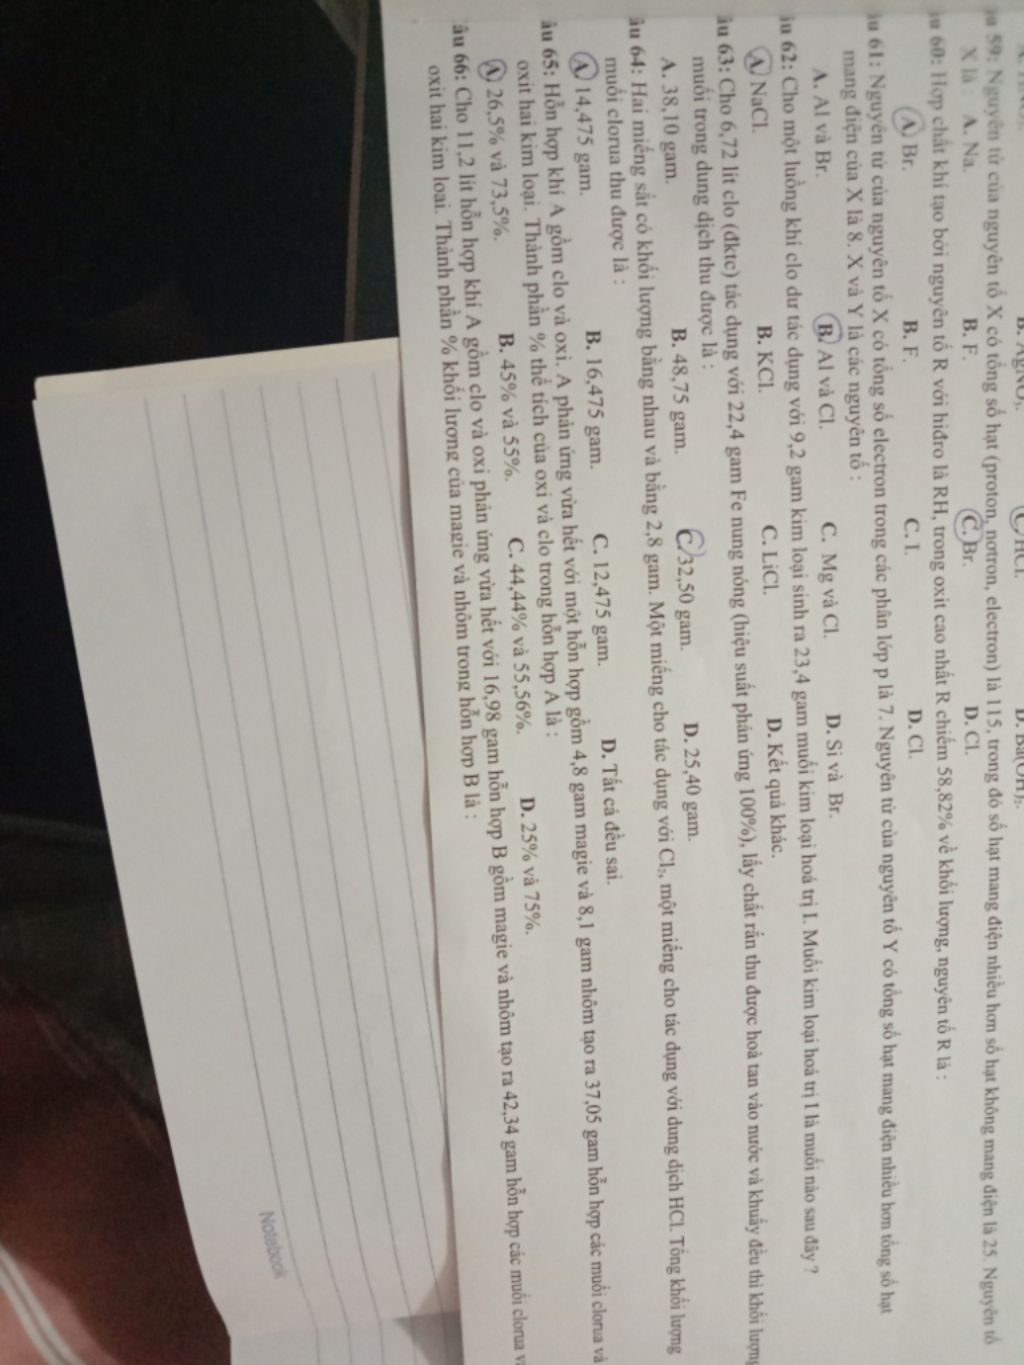 B. AgNO₃. C. HCl. D. Ba(OH)₂.
59: Nguyên tử của nguyên tố X có tổng số hạt (proton, nơtron, electron) là 115, trong đó số hạt mang điện nhiều hơn số hạt không mang điện là 25. Nguyên tố
X là : A. Na. B. F. C. Br. D. Cl.
60: Hợp chất khí tạo bởi nguyên tố R với hiđro là RH, trong oxit cao nhất R chiếm 58,82% về khối lượng, nguyên tố R là :
A. Br. B. F. C. I. D. Cl.
âu 61: Nguyên tử của nguyên tố X có tổng số electron trong các phân lớp p là 7. Nguyên tử của nguyên tố Y có tổng số hạt mang điện nhiều hơn tổng số hạt
mang điện của X là 8. X và Y là các nguyên tố :
A. Al và Br. B. Al và Cl. C. Mg và Cl. D. Si và Br.
âu 62: Cho một luồng khí clo dư tác dụng với 9,2 gam kim loại sinh ra 23,4 gam muối kim loại hoá trị I. Muối kim loại hoá trị I là muối nào sau đây ?
A. NaCl. B. KCl. C. LiCl. D. Kết quả khác.
âu 63: Cho 6,72 lít clo (đktc) tác dụng với 22,4 gam Fe nung nóng (hiệu suất phản ứng 100%), lấy chất rắn thu được hoà tan vào nước và khuấy đều thì khối lượng
muối trong dung dịch thu được là :
A. 38,10 gam. B. 48,75 gam. C. 32,50 gam. D. 25,40 gam.
âu 64: Hai miếng sắt có khối lượng bằng nhau và bằng 2,8 gam. Một miếng cho tác dụng với Cl₂, một miếng cho tác dụng với dung dịch HCl. Tổng khối lượng
muối clorua thu được là :
A. 14,475 gam. B. 16,475 gam. C. 12,475 gam. D. Tất cả đều sai.
âu 65: Hỗn hợp khí A gồm clo và oxi. A phản ứng vừa hết với một hỗn hợp gồm 4,8 gam magie và 8,1 gam nhôm tạo ra 37,05 gam hỗn hợp các muối clorua và
oxit hai kim loại. Thành phần % thể tích của oxi và clo trong hỗn hợp A là :
A. 26,5% và 73,5%. B. 45% và 55%. C. 44,44% và 55,56%. D. 25% và 75%.
âu 66: Cho 11,2 lít hỗn hợp khí A gồm clo và oxi phản ứng vừa hết với 16,98 gam hỗn hợp B gồm magie và nhôm tạo ra 42,34 gam hỗn hợp các muối clorua và
oxit hai kim loại. Thành phần % khối lượng của magie và nhôm trong hỗn hợp B là :
Notebook